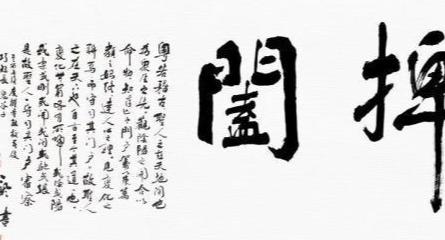 捭闔
粵若稽古聖人之在天地間也
為眾生之先觀陰陽之開合以
命物知存亡之門戶籌策萬
類之終始達人心之理見變化之
朕焉而守司其門戶故聖人
之在天下也自古至今其道一也
變化無窮各有所歸或陰或陽
或柔或剛或開或閉或弛或張
是故聖人一守司其門戶審察